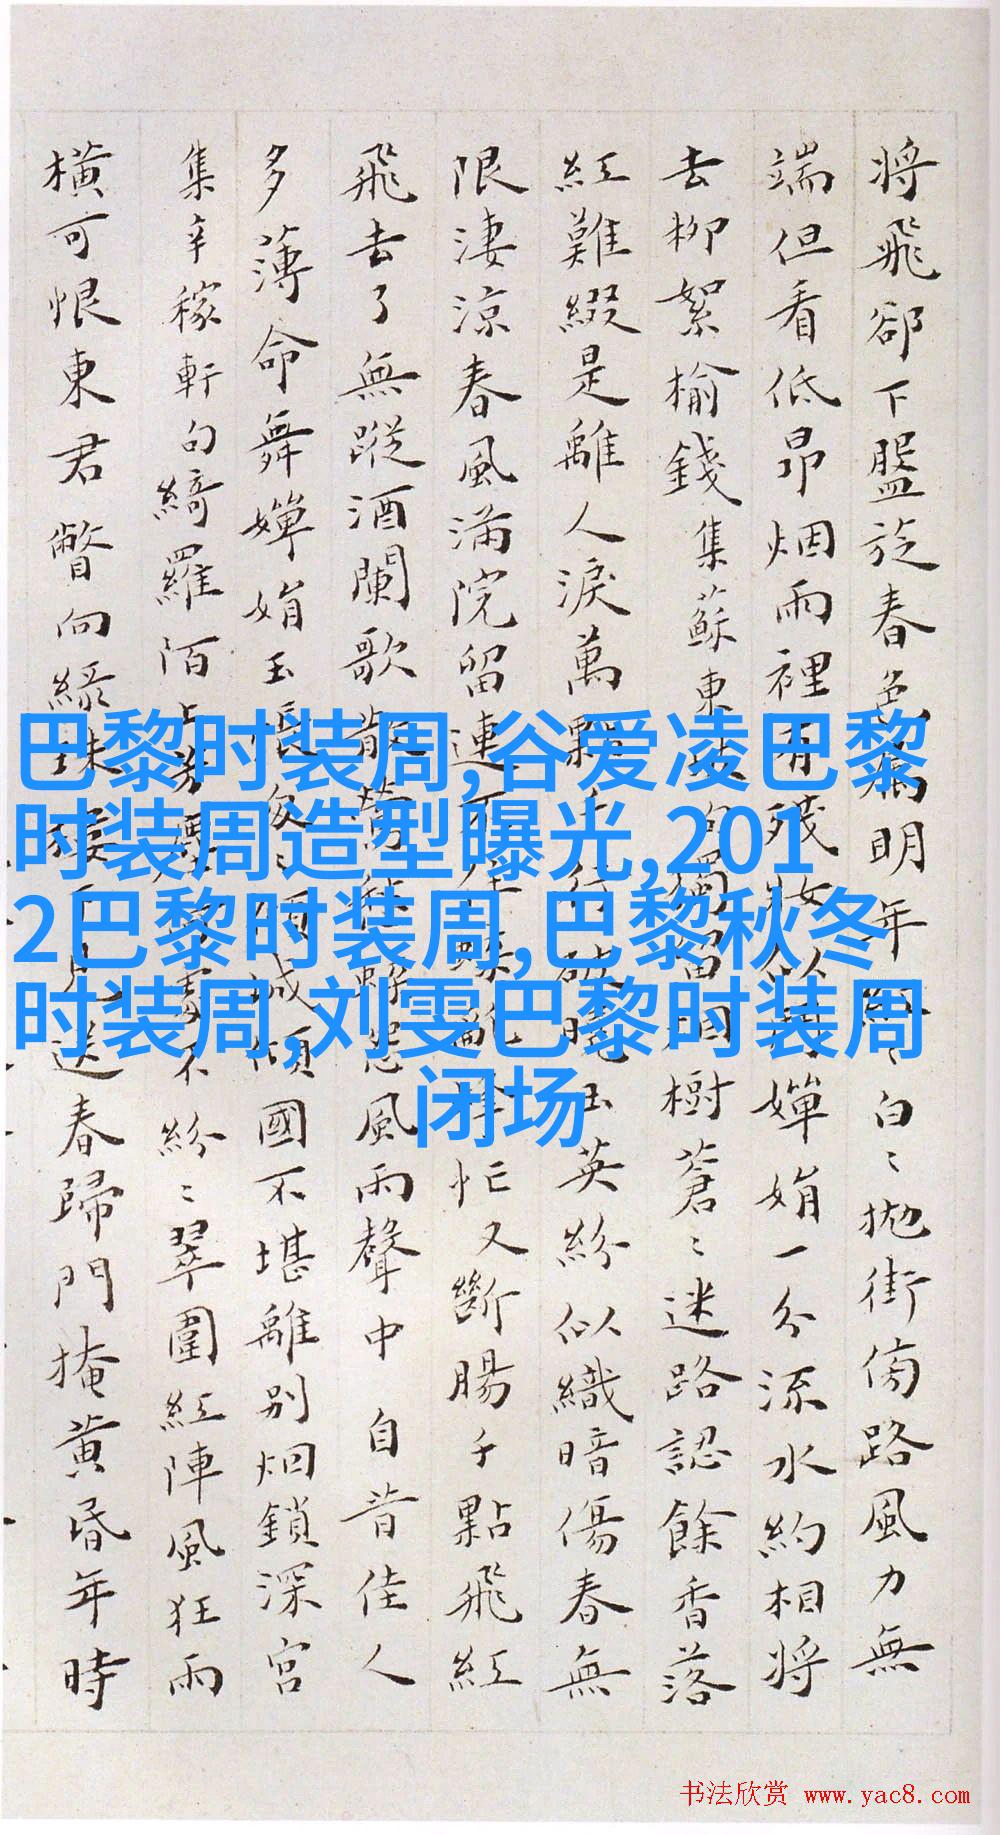 將飛卻下盤旋春色屬明年紅〻白〻拋街傍路風力無
端但看低昂烟雨裡有殘妝嬋娟一分流水約相將
去柳絮榆錢集蘇東坡句獨留樹蒼〻迷路認餘香落
紅難綴是離人淚萬顆千行破曉玉英紛似織暗傷春無
限淒涼春風滿院留連不住蜂忙又斷腸千點飛紅
飛去了無蹤酒闌歌散風雨聲中 自昔佳人
多薄命舞嬋娟玉城傾國不堪離別烟鎖深宮
集辛稼軒句綺羅陌上不紛〻翠圍紅陣風狂雨
橫可恨東君瞥向緣珠樓送春歸門掩黃昏年時
巴黎时装周,谷爱凌巴黎
时装周造型曝光,201
2巴黎时装周,巴黎秋冬
时装周,刘雯巴黎时装周
闭场
书法欣赏 www.yac8.com